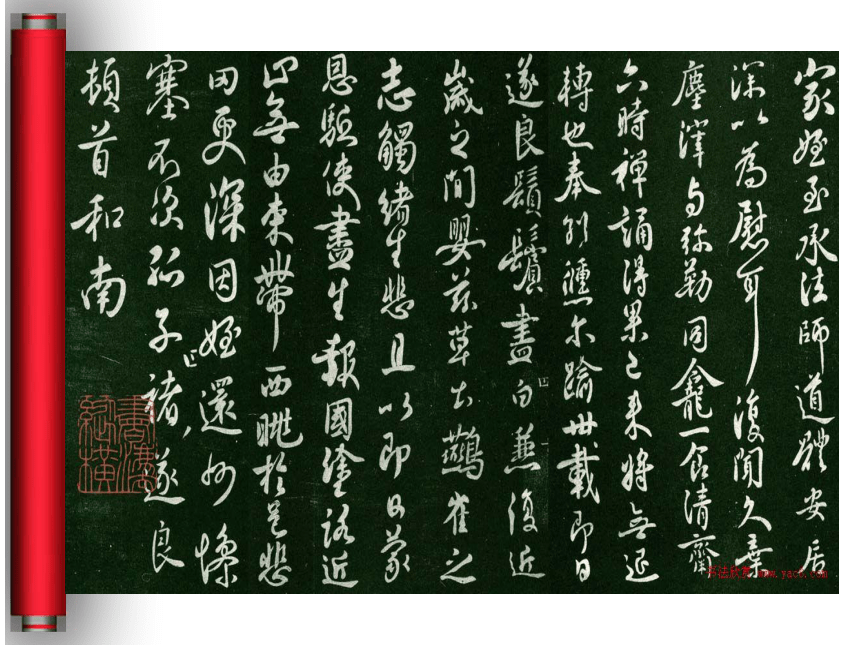 家姪至承法師道體安居
深以為慰耳復聞久棄
塵滓与弥勒同龕一食清齋
六時禪誦得果已來將無退
轉也奉別倐尓踰卅載即日
遂良鬚鬢盡白兼復近
歲之間嬰茲草土鷰雀之
志觸緒生悲且以即日蒙
恩驅使盡生報國塗路近
止無由束帶西眺於邑悲
罔更深因姪還州慘
塞不次孤子褚遂良
頓首和南
书法欣赏 www.yac8.com